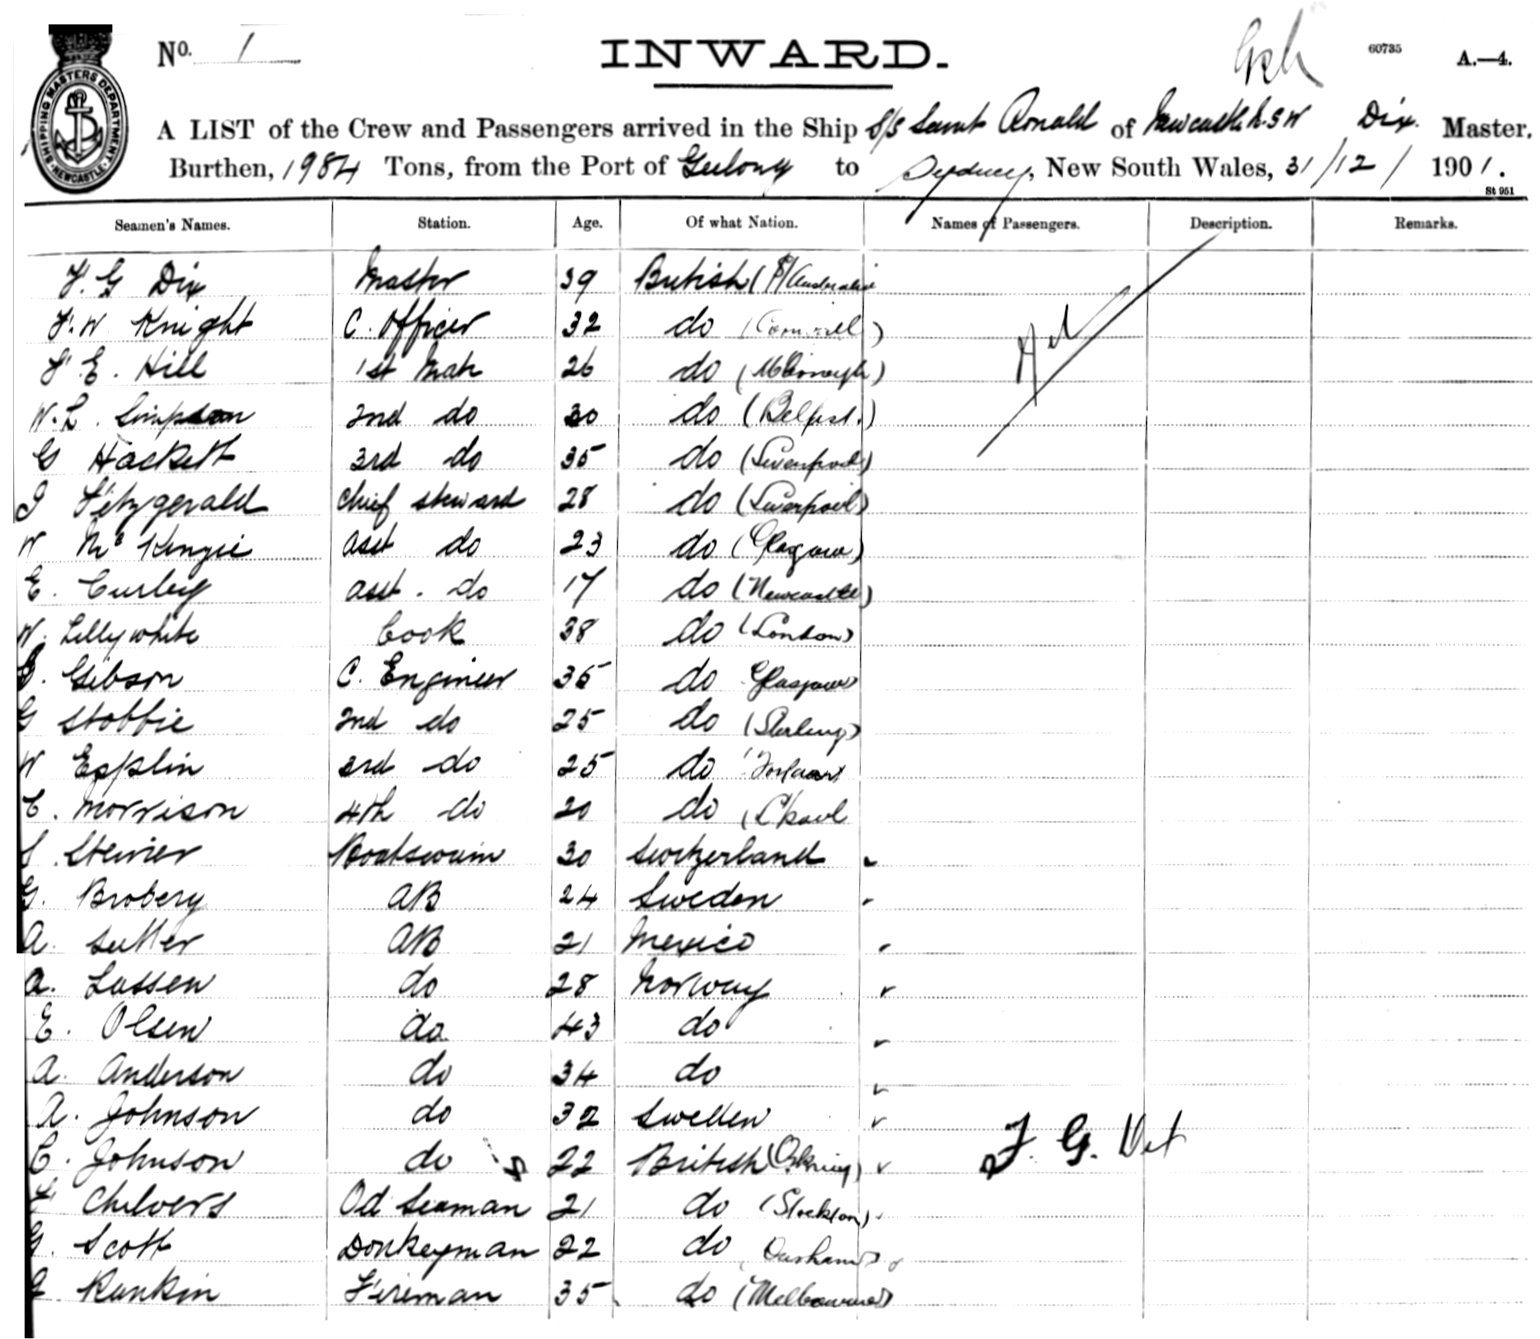 No. 1
INWARD.
60735
A.—4.
SHIPPING MASTERS DEPARTMENT NEWCASTLE
A LIST of the Crew and Passengers arrived in the Ship S/S Saint Ronald of Newcastle N.S.W Dix. Master,
Burthen, 1984 Tons, from the Port of Geelong to Sydney, New South Wales, 31/12/1901.
St 951
Seamen's Names. Station. Age. Of what Nation. Names of Passengers. Description. Remarks.
F. G Dix Master 39 British (S/Australia
F. W Knight C. Officer 32 do (Cornwall)
F. E. Hill 1st Mate 26 do
W. L. Simpson 2nd do 30 do (Belfast.)
G Hackett 3rd do 35 do (Liverpool)
J Fitzgerald Chief Steward 28 do (Liverpool)
W Mc Kenzie asst do 23 do (Glasgow)
E. Curley asst. do 17 do (Newcastle)
W. Lillywhite Cook 38 do (London)
Gibson C. Engineer 35 do Glasgow
G Stobbie 2nd do 25 do (Sterling)
W Epplin 3rd do 25 do
C. Morrison 4th do 20 do
S Steiner Boatswain 30 Switzerland
G. Broberg AB 24 Sweden
A. Sutter AB 21 Mexico
A. Lassen do 28 Norway
E. Olsen do 43 do
A. Anderson do 34 do
A. Johnson do 32 Sweden
C. Johnson do 22 British (Orkney)
F Chilvers Od Seaman 21 do (Stockton)
G. Scott Donkeyman 22 do Durham)
Rankin Fireman 35 do (Melbourne)
Nil
F. G. Dix